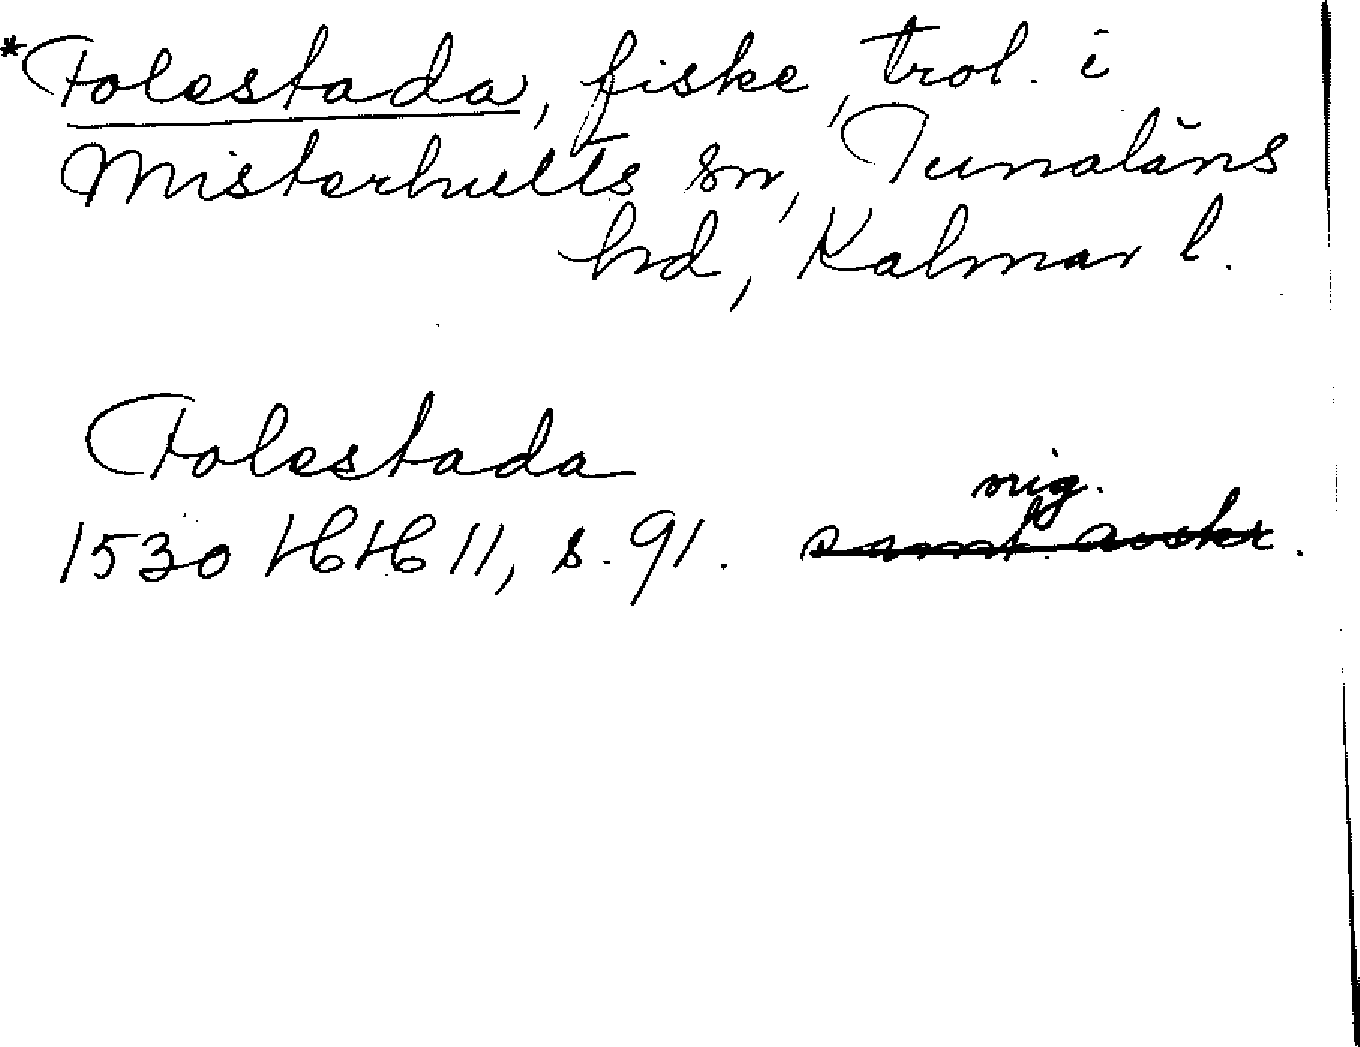 *Folestada, fiske, trol. i
Misterhults sn, Tunaläns
hd, Kalmar l.
Folestada
orig.
1530 HH 11, s. 91. samt. avskr.